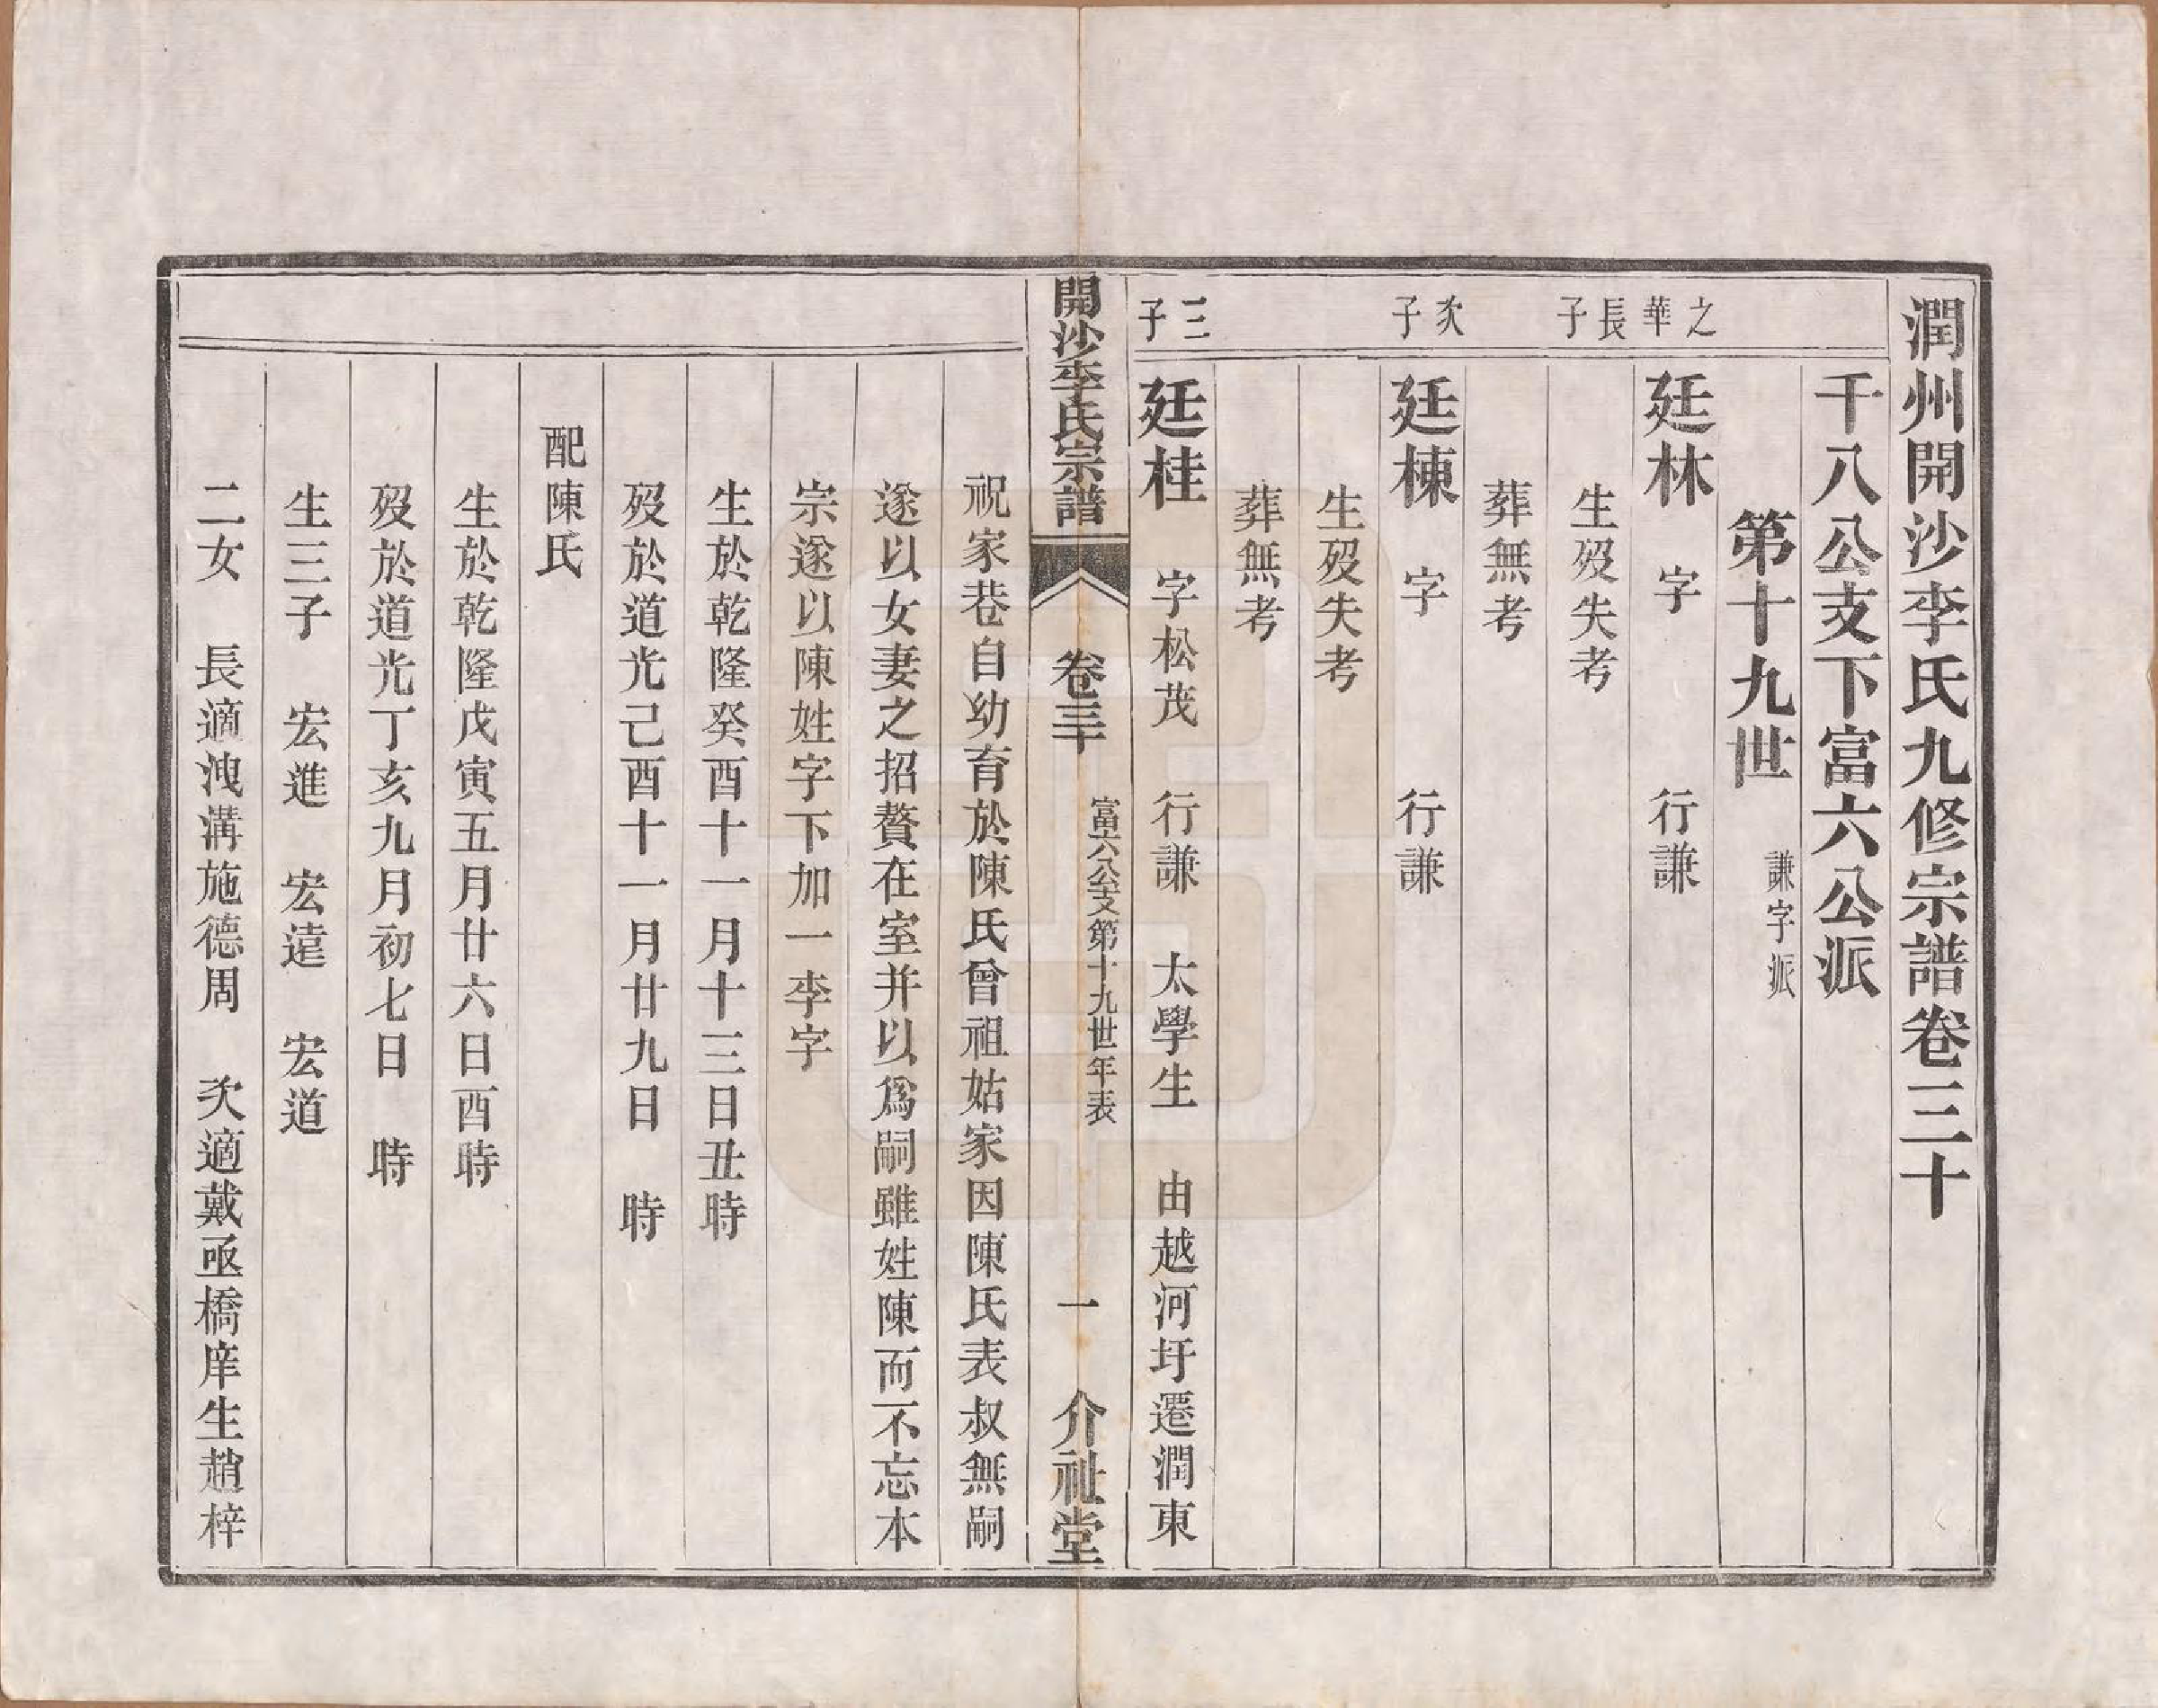 潤州開沙李氏九修宗譜卷三十
千八公支下富六公派
第十九世 謙字派
之華長子
廷林 字 行謙
生歿失考
葬無考
次子
廷棟 字 行謙
生歿失考
葬無考
三子
廷桂 字松茂 行謙 太學生 由越河圩遷潤東
開沙李氏宗譜 卷三十 富六公支第十九世年表 一 介祉堂
祝家巷自幼育於陳氏曾祖姑家因陳氏表叔無嗣
遂以女妻之招贅在室并以爲嗣雖姓陳而不忘本
宗遂以陳姓字下加一李字
生於乾隆癸酉十一月十三日丑時
歿於道光己酉十一月廿九日 時
配陳氏
生於乾隆戊寅五月廿六日酉時
歿於道光丁亥九月初七日 時
生三子 宏進 宏達 宏道
二女 長適洩溝施德周 次適戴亟橋庠生趙梓